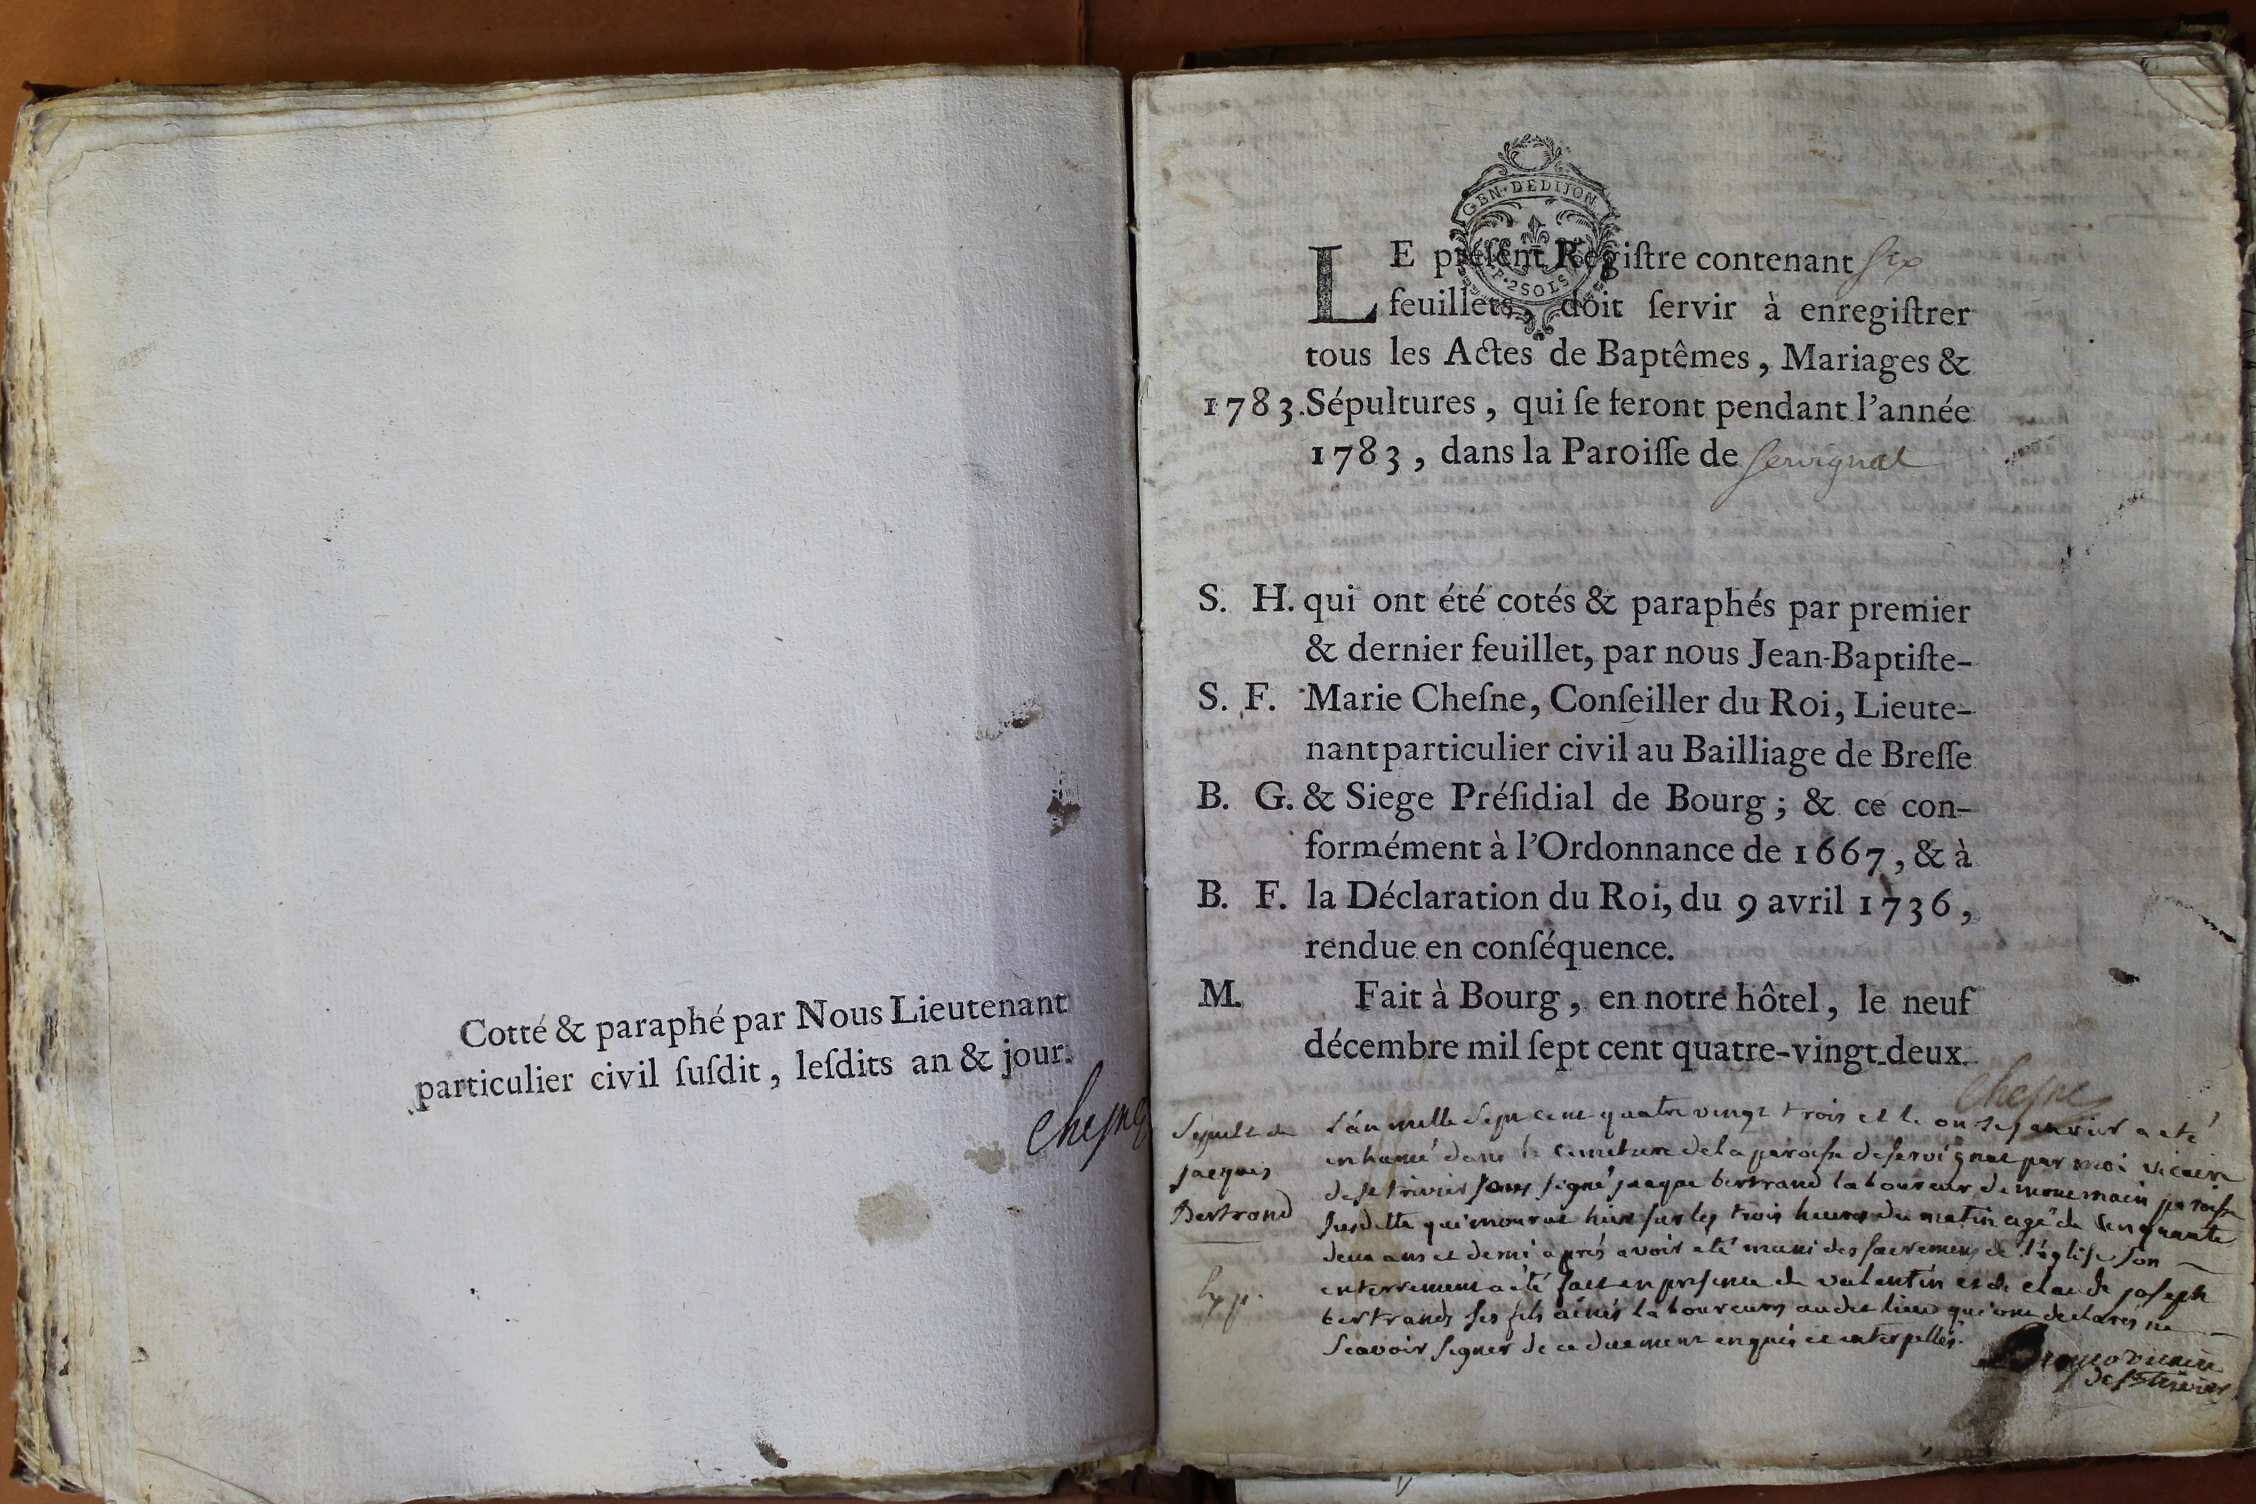 Cotté & paraphé par Nous Lieutenant
particulier civil ſuſdit, leſdits an & jour.
Cheſne
GEN·DEDIJON
P·2SOLS
LE préſent Regiſtre contenant ſix
feuillets, doit ſervir à enregiſtrer
tous les Actes de Baptêmes, Mariages &
1783. Sépultures, qui ſe feront pendant l'année
1783, dans la Paroiſſe de Servignat
S. H. qui ont été cotés & paraphés par premier
& dernier feuillet, par nous Jean-Baptiſte-
S. F. Marie Cheſne, Conſeiller du Roi, Lieute-
nant particulier civil au Bailliage de Breſſe
B. G. & Siege Préſidial de Bourg; & ce con-
formément à l'Ordonnance de 1667, & à
B. F. la Déclaration du Roi, du 9 avril 1736,
rendue en conſéquence.
M. Fait à Bourg, en notre hôtel, le neuf
décembre mil ſept cent quatre-vingt-deux.
Cheſne
Sepult de
jacques
Bertrand
L'an mille Sept cent quatre vingt trois et le onze janvier a eté
inhumé dans le cimetiere de la paroiſse de ſervignat par moi vicaire
de St trivier sous ſigné jacque bertrand laboureur de paroiſse
ſusditte qui mourut hier ſur les trois heures du matin agé de cinquante
deux ans et demi aprés avoir eté muni des ſacremens de l'égliſe ſon
enterrement a été fait en preſence de valentin et de claude joſeph
bertrands ſes fils ainés laboureurs audit lieu qui ont declarés ne
Scavoir ſigner de ce duement enquis et interpellés.
vicaire
de St trivier